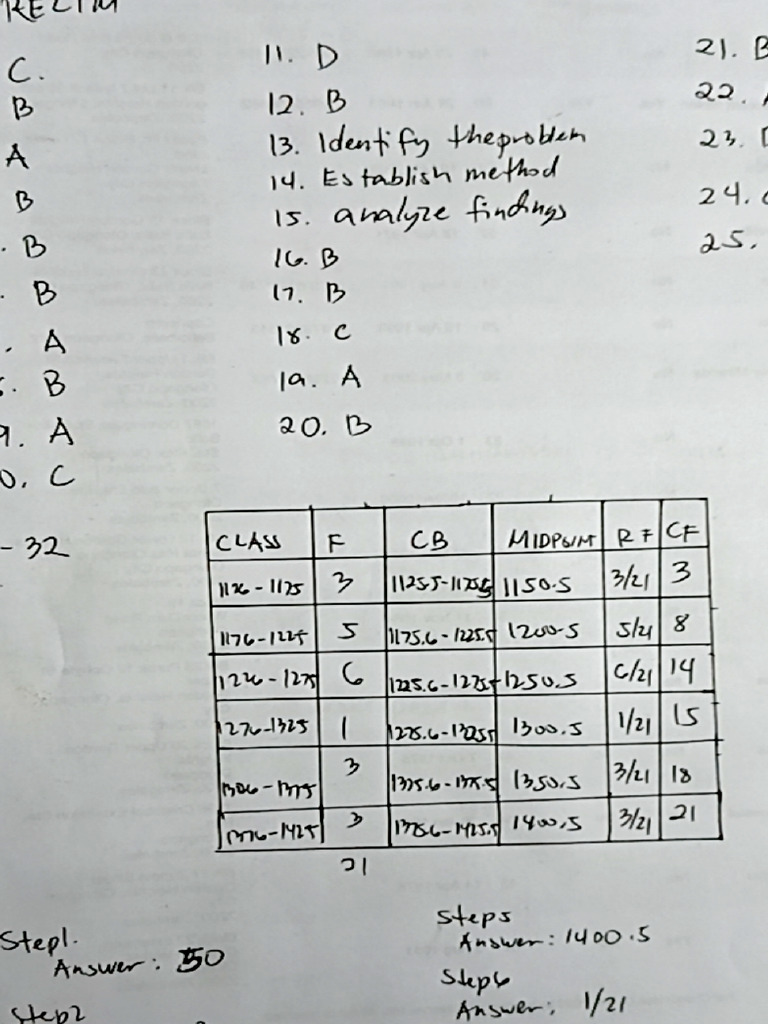 RELIM
C.
B
A
B
. B
. B
. A
. B
9. A
0. C
- 32
11. D
12. B
13. Identify the problem
14. Establish method
15. analyze findings
16. B
17. B
18. C
19. A
20. B
21. B
22.
23.
24.
25.
CLASS F CB MIDPOINT RF CF
1126-1175 3 1125.5-1175.5 1150.5 3/21 3
1176-1225 5 1175.6-1225.5 1200.5 5/21 8
1226-1275 6 1225.6-1275.5 1250.5 6/21 14
1276-1325 1 1275.6-1325.5 1300.5 1/21 15
1306-1375 3 1325.6-1375.5 1350.5 3/21 18
1376-1425 3 1375.6-1425.5 1400.5 3/21 21
21
Step1.
Answer: 50
Step2
Step5
Answer: 1400.5
Step6
Answer: 1/21